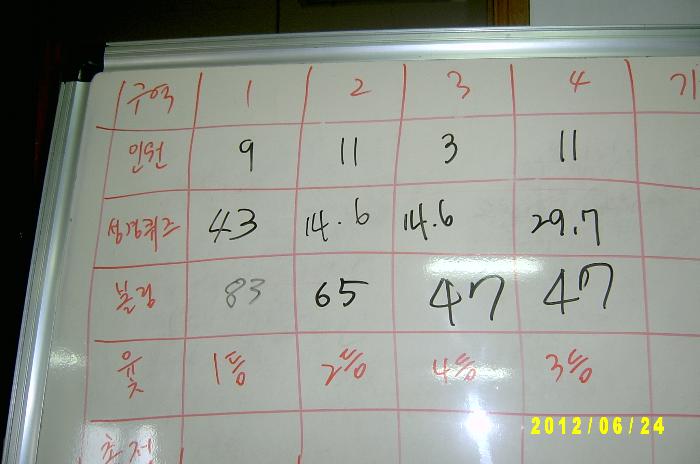 구역 1 2 3 4 기
인원 9 11 3 11
성경퀴즈 43 14.6 14.6 29.7
볼링 83 65 47 47
윷 1등 2등 4등 3등
2012/06/24